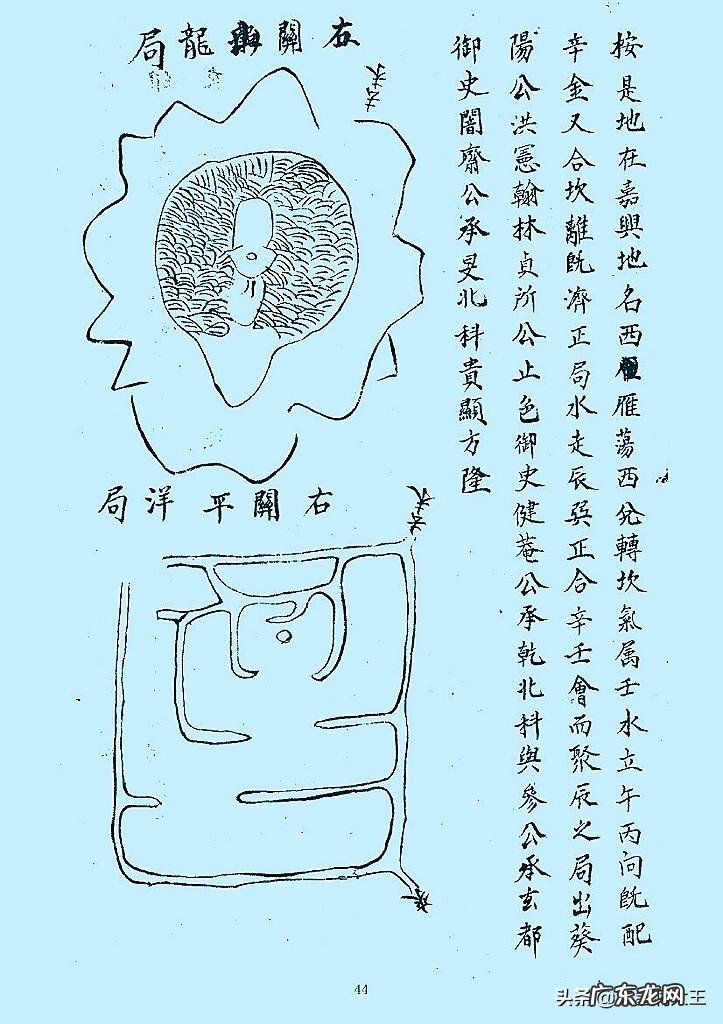 按是地在嘉興地名西雁蕩西兌轉坎氣属壬水立午丙向旣配
辛金又合坎離旣濟正局水走辰巽正合辛壬會而聚辰之局出葵
陽公洪憲翰林貞所公止色御史健菴公承乾北科與參公承玄都
御史闇齋公承旻北科貴顯方隆
右關龍局
右關平洋局
44
头条@广东龙网